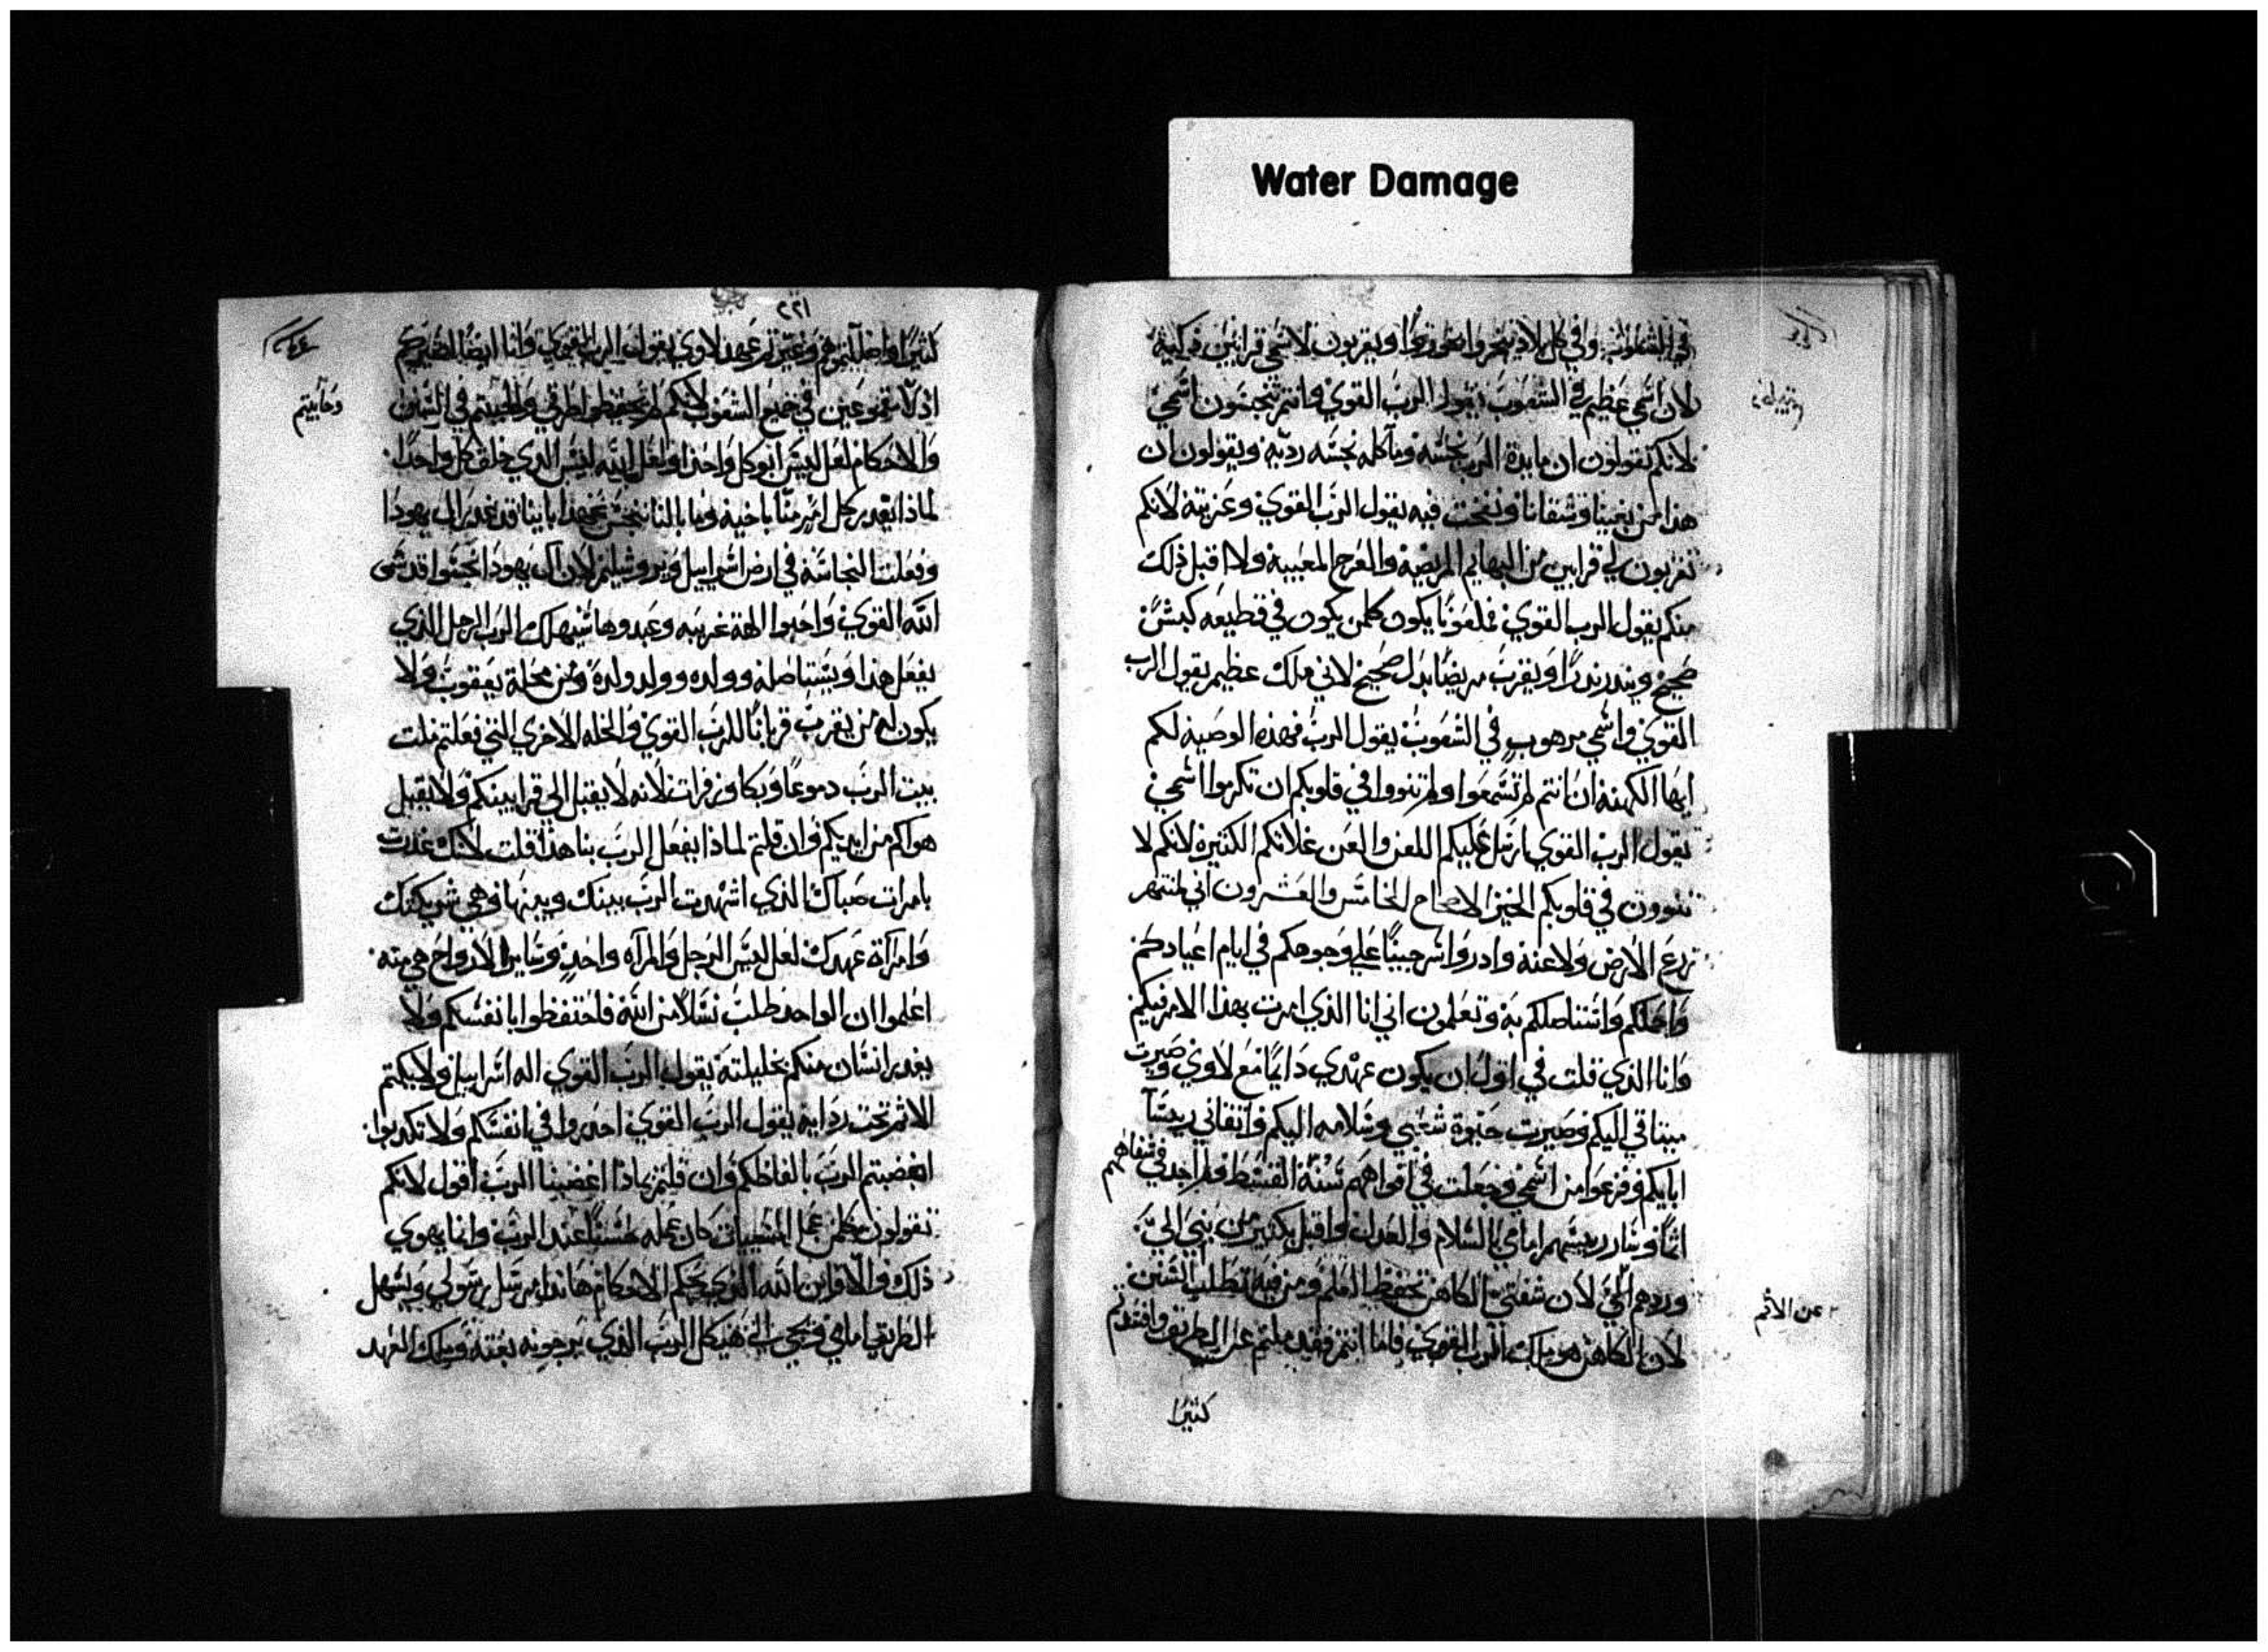 Water Damage
في الشعوب وفي كل بلاد يبخروا بخورًا ويقربون لاسمي قرابين زكية
لان اسمي عظيم في الشعوب يقول الرب القوي فانتم تنجسون اسمي
لانكم تقولون ان مايدة الرب نجسه وماكله نجسه رديه ويقولون ان
هذا من تعبنا وشقانا ونفخت فيه يقول الرب القوي لانكم
تقربون لي قرابين من البهايم المريضة والعرج المعيبية ولا اقبل ذلك
منكم يقول الرب القوي فملعونًا يكون كلمن يكون في قطيعه كبش
صحيح وينذر نذرًا ويقرب مريضًا بدل صحيح لاني ملك عظيم يقول الرب
القوي واسمي مرهوب في الشعوب يقول الرب فهذه الوصية لكم
ايها الكهنة ان انتم لم تسمعوا ولم تنووا في قلوبكم ان تكرموا اسمي
يقول الرب القوي ارسل عليكم اللعن والعن غلاتكم الكثيرة لانكم لا
تنوون في قلوبكم الخير الاصحاح الخامس والعشرون اني منتهر
زرع الارض ولاعنه واذروا على وجوهكم في ايام اعيادكم
واجعلكم به وتعلمون اني انا الذي امرت بهذا الامر فيكم
وانا الذي قلت في اقول ان يكون عهدي دايمًا مع لاوي وصيرت
ميثاقي اليكم وصيرت حيوة شعبي وسلامه اليكم واتقاني
ابايكم وفزعوا من اسمي وجعلت في افواههم سنة القسط فلم اجد في شفاههم
اثمًا وسار امامي بالسلام والعدل واقبل بكثير من بني الي
وردهم الي لان شفتي الكاهن تحفظ العلم ومن فيه تطلب السنن
لان الكاهن هو ملاك الرب القوي فاما انتم فقد ملتم عن الطريق
عن الاثم
كثيرًا
٢٢١
كثيرًا لاوي يقول الرب القوي وانا ايضًا اصيركم
في جميع الشعوب لانكم لم تحفظوا طرقي في السنن
وحابيتم
والاحكام لعل ليس ابو كل واحدًا او لعل الله ليس الذي خلق كل واحدًا
لماذا يغدر كل امر منّا باخيه وما بالنا ننجس عهد ابايننا قد غدر ال يهودا
وفعلت النجاسة في ارض اسراييل ويروشليم لان ال يهودا نجسوا قدس
الله القوي واحبوا الهة غريبه وعبدوها سيهلك الرب الرجل الذي
يفعل هذا ويستاصله وولده وولد ولده من محلة يعقوب ولا
يكون له من يقرب قربانًا للرب القوي والخله الاخري التي فعلتم ملت
بيت الرب دموعًا وبكا وزفرات لانه لا يقبل الي قرابينكم ولا يقبل
هواكم من ايديكم وان قلتم لماذا يفعل الرب بنا هذا قلت لانك غدرت
بامراة صباك الذي اشهدت الرب بينك وبينها وهي شريكتك
وامراة عهدك لعل ليس الرجل والمراه واحد وساير الارواح هي منه
اعلموا ان الواحد طلب نسلًا من الله فاحتفظوا بانفسكم ولا
يغدر انسان منكم بخليلته يقول الرب القوي اله اسراييل ولا يكتم
الاثم تحت ردايه يقول الرب القوي احذروا في انفسكم ولا تكذبوا
اغضبتم الرب بالفاظكم وان قلتم بماذا اغضبنا الرب اقول لانكم
تقولون كلمن عمل السيات كان عمله حسنًا عند الرب وانما يهوي
ذلك والا فاين الله الذي يحكم الاحكام هانذا مرسل رسولي ويسهل
الطريق امامي ويجي الي هيكل الرب الذي يرجونه بغتة وملك العهد